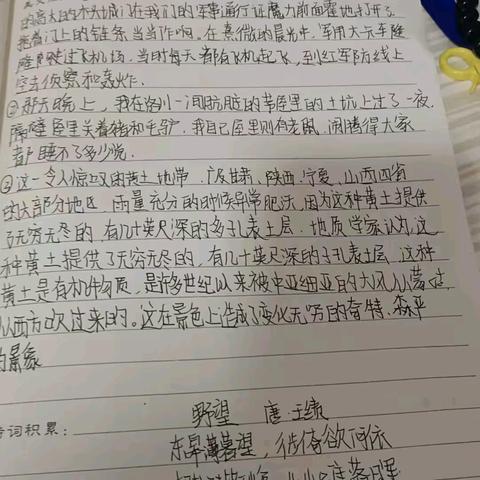 的高大的木头城门在我们的军事通行证魔力前面霍地打开了
拖着门上的链条当当作响。在熹微的晨光中,军用大卡车隆
隆地驶过飞机场,当时每天都有飞机起飞,到红军防线上
空去侦察和轰炸.
②那天晚上,我在洛川一间肮脏的草屋里的土炕上过了一夜.
隔壁屋里关着猪和毛驴.我自己屋里则有老鼠,闹腾得大家
都睡不了多少觉.
③这一令人惊叹的黄土地带,广及甘肃、陕西、宁夏、山西四省
的大部分地区,雨量充分的时候异常肥沃,因为这种黄土提供
了无穷无尽的,有几十英尺深的多孔表土层.地质学家认为,这
种黄土提供了无穷无尽的,有几十英尺深的多孔表土层.这种
黄土是有机物质,是许多世纪以来被中亚细亚的大风从蒙古,
从西方吹过来的。这在景色上造成了变化无穷的奇特、森严
的景象
诗词积累:
野望 唐·王绩
东皋薄暮望,徙倚欲何依
落晖